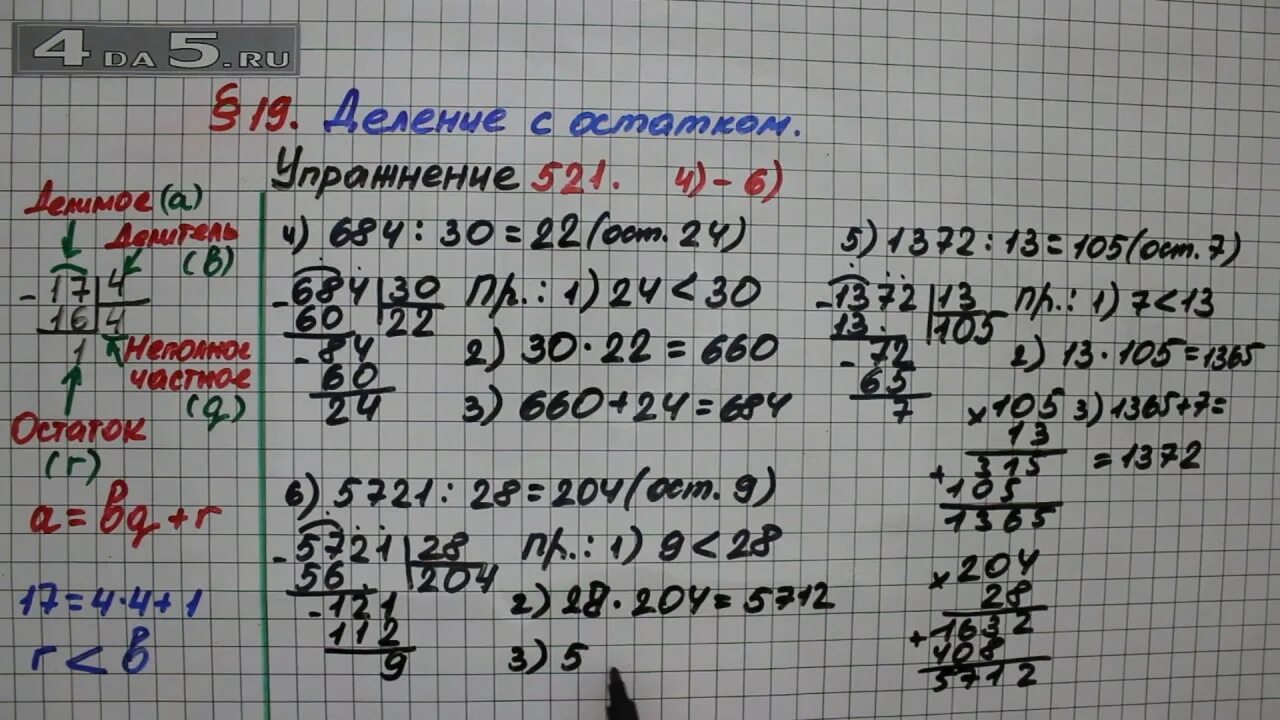 4 DA 5.RU
§ 19. Деление с остатком.
Упражнение 521. 4) - 6)
Делимое (a)
Делитель (b)
- 17 | 4
16 | 4
1
Неполное
частное
(q)
Остаток
(r)
a = bq + r
17 = 4 · 4 + 1
r < b
4) 684 : 30 = 22 (ост. 24)
- 684 | 30
60 | 22
- 84
60
24
Пр.: 1) 24 < 30
2) 30 · 22 = 660
3) 660 + 24 = 684
5) 1372 : 13 = 105 (ост. 7)
- 1372 | 13
13 | 105
- 72
65
7
Пр.: 1) 7 < 13
2) 13 · 105 = 1365
× 105
13
+ 315
105
1365
3) 1365 + 7 =
= 1372
6) 5721 : 28 = 204 (ост. 9)
- 5721 | 28
56 | 204
- 121
112
9
Пр.: 1) 9 < 28
2) 28 · 204 = 5712
3) 5
× 204
28
+ 1632
408
5712